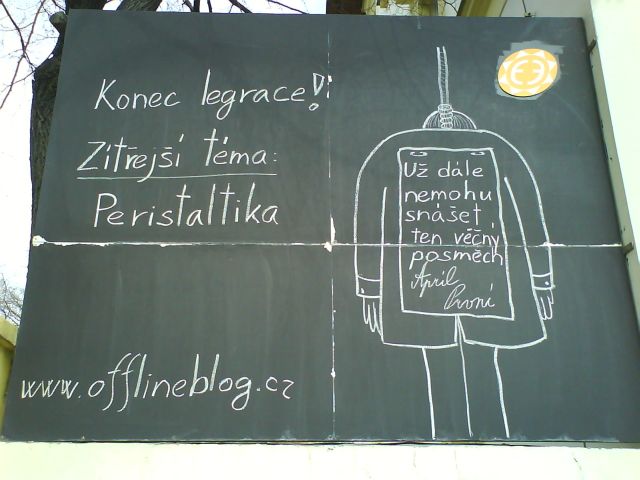 Konec legrace!
Zítřejší téma:
Peristaltika
www.offlineblog.cz
Už dále
nemohu
snášet
ten věčný
posměch
April
První